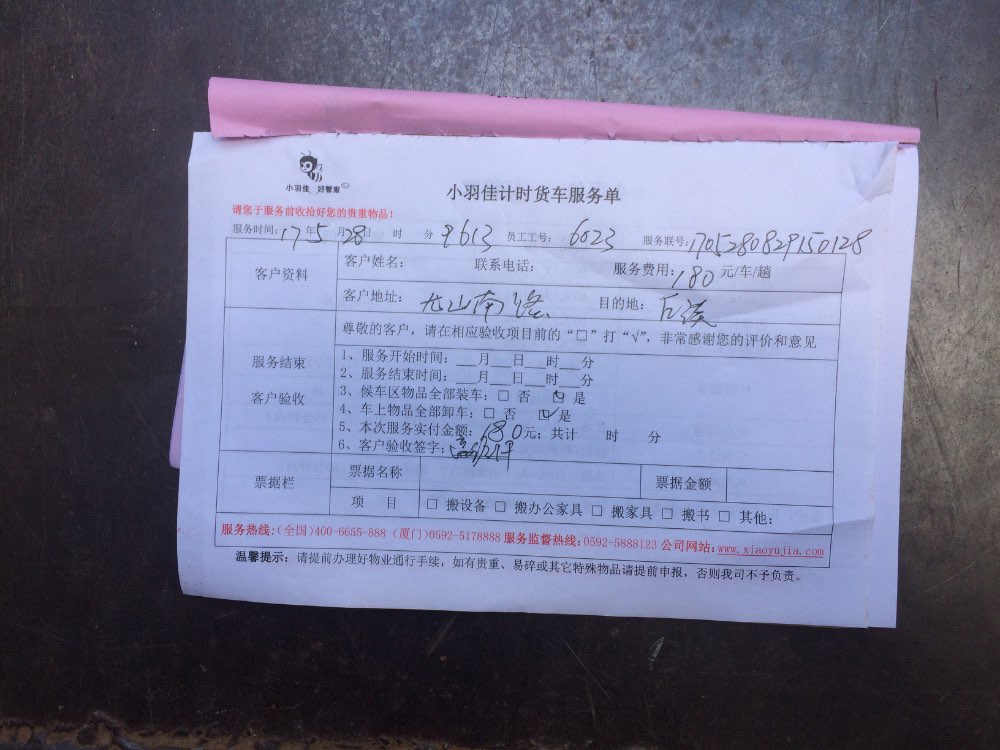 小羽佳 好管家
小羽佳计时货车服务单
请您于服务前收拾好您的贵重物品!
服务时间: 17年 5月 28日 时 分 9613 员工工号: 6023 服务联号: 1705280829150128
客户资料
客户姓名: 联系电话: 服务费用: 180 元/车/趟
客户地址: 龙山南路 目的地: 后溪
服务结束
客户验收
尊敬的客户,请在相应验收项目前的“□”打“√”,非常感谢您的评价和意见
1、服务开始时间: __月__日__时__分
2、服务结束时间: __月__日__时__分
3、候车区物品全部装车: □ 否 ☑ 是
4、车上物品全部卸车: □ 否 ☑ 是
5、本次服务实付金额: 180元; 共计 时 分
6、客户验收签字:
票据栏
票据名称 票据金额
项 目 □ 搬设备 □ 搬办公家具 □ 搬家具 □ 搬书 □ 其他:
服务热线:(全国)400-6655-888 (厦门)0592-5178888 服务监督热线:0592-5888123 公司网站:www.xiaoyujia.com
温馨提示: 请提前办理好物业通行手续,如有贵重、易碎或其它特殊物品请提前申报,否则我司不予负责。